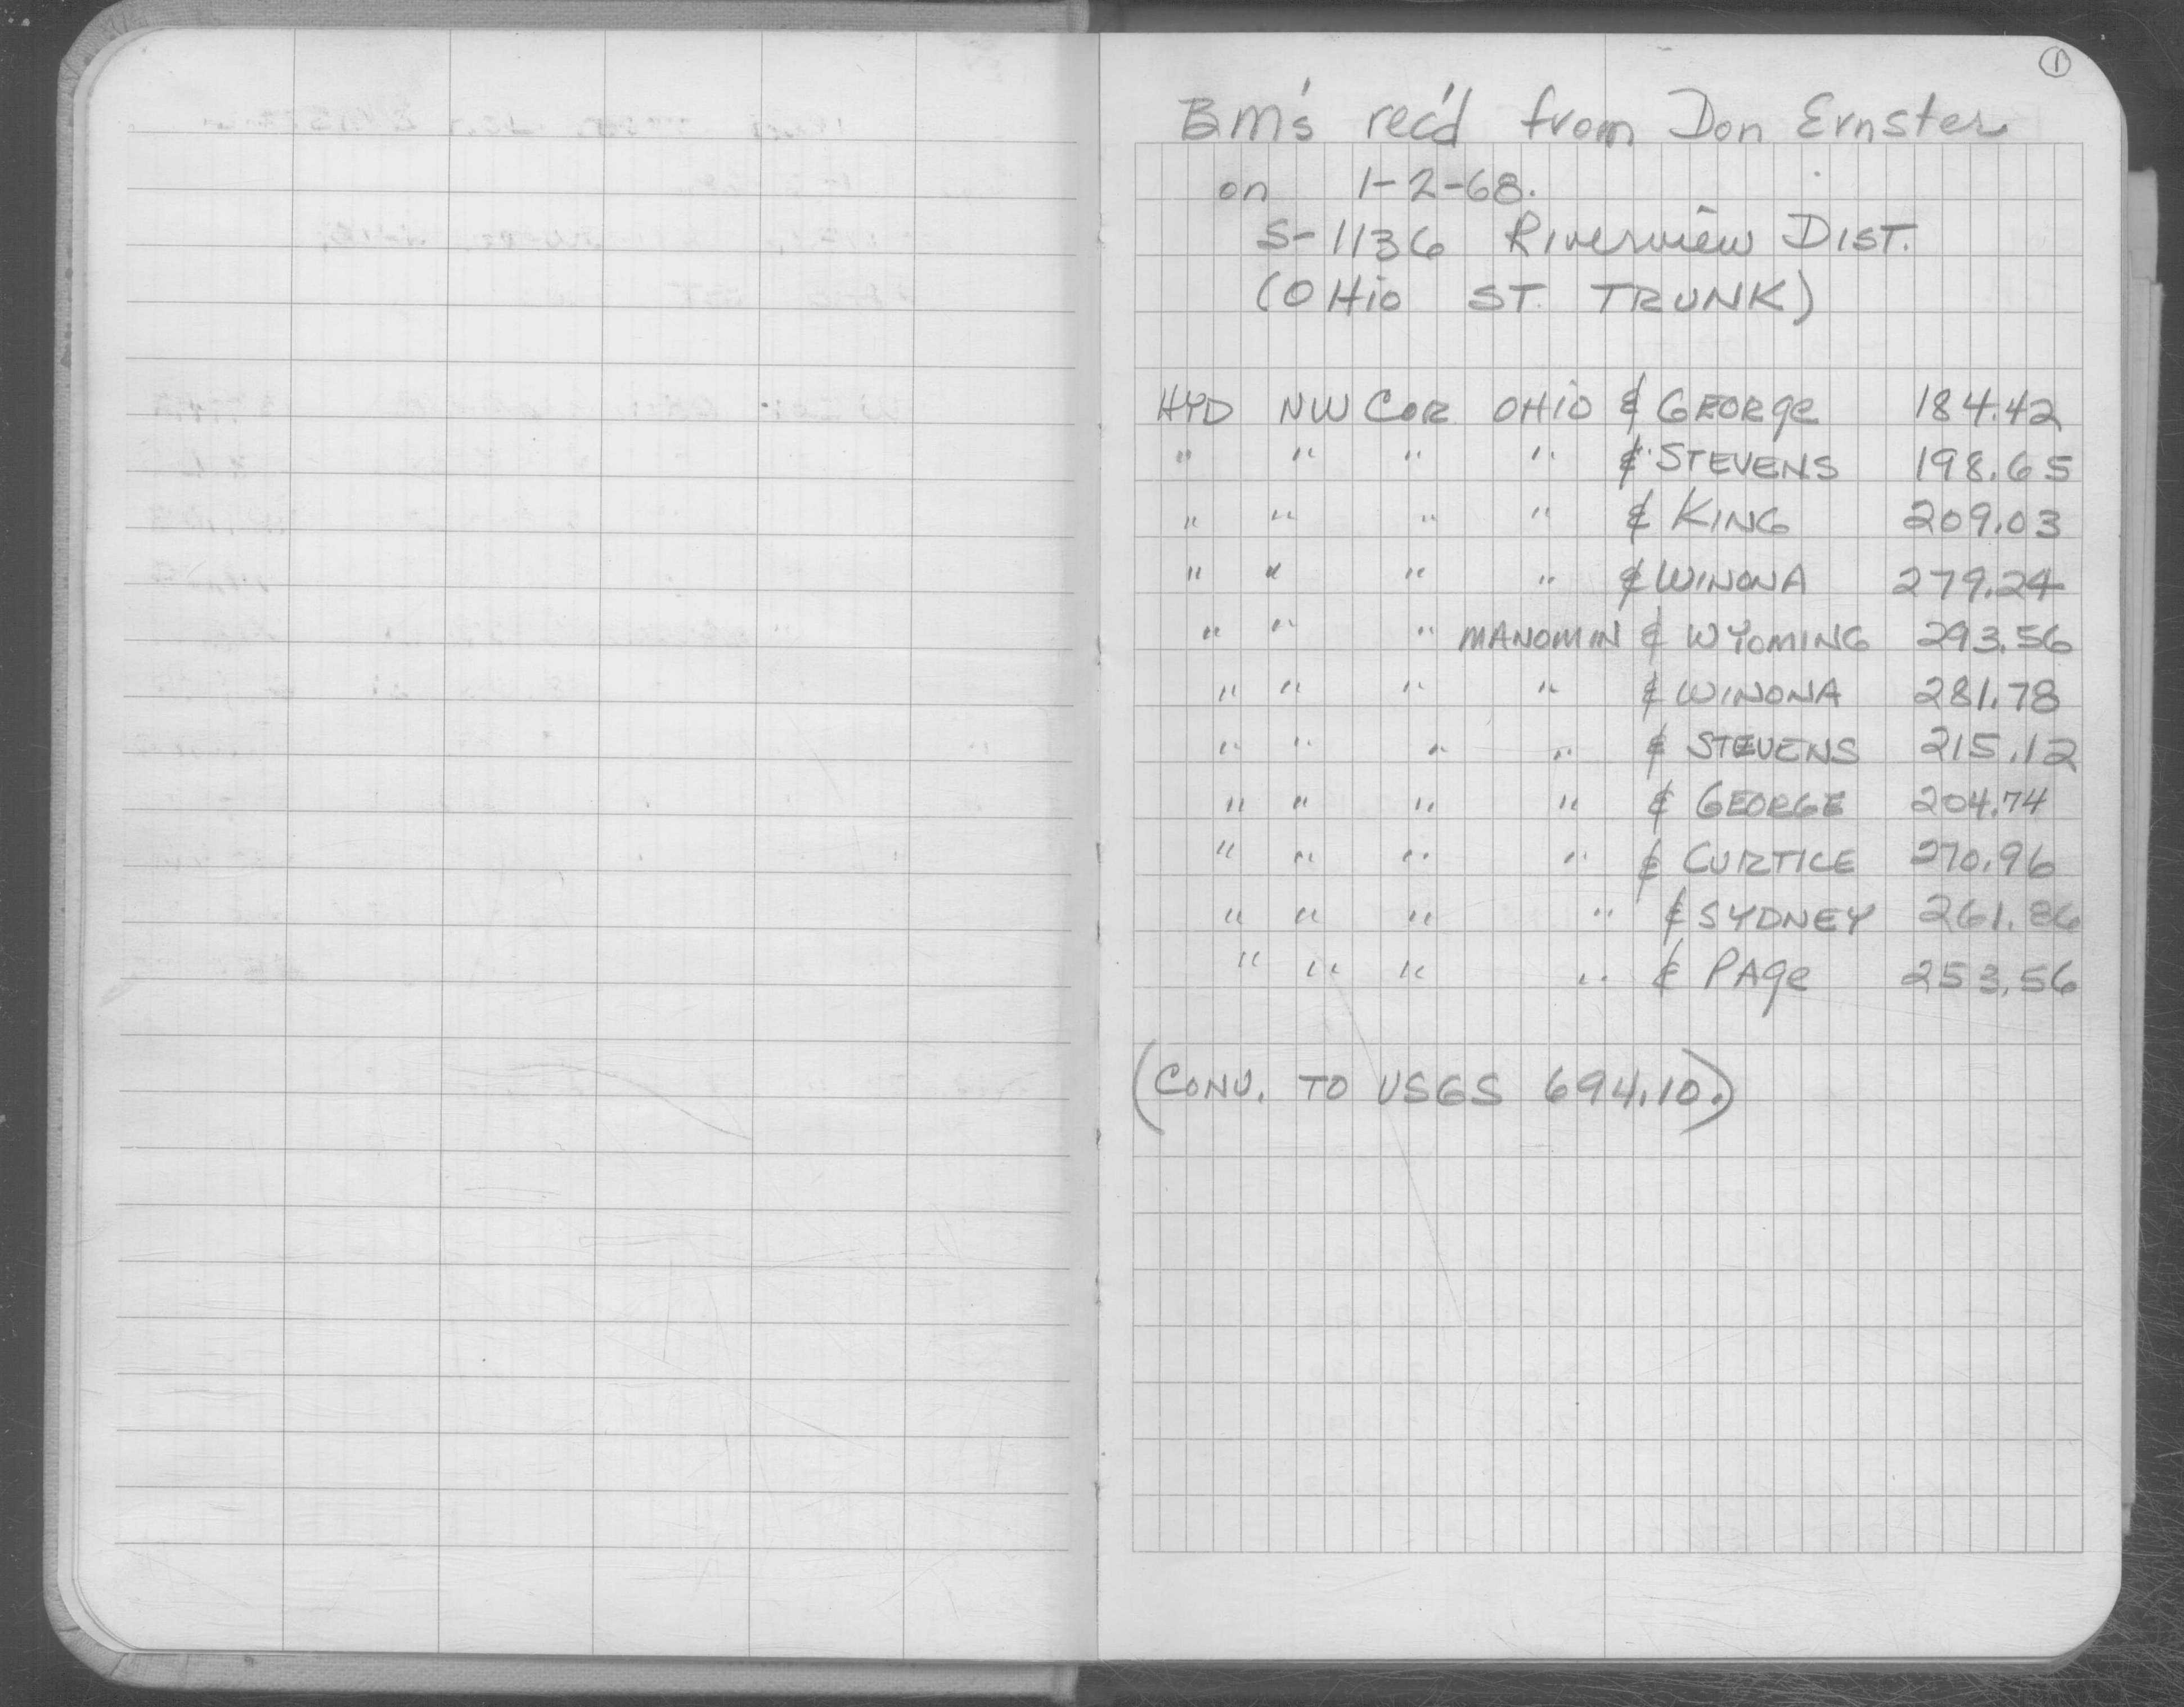 1
BM's rec'd from Don Ernster
on 1-2-68.
S-1136 Riverview DIST.
(OHio ST. TRUNK)
HYD NW COR OHIO & GEORge 184.42
" " " " & STEVENS 198.65
" " " " & KING 209.03
" " " " & WINONA 279.24
" " " MANOMIN & WYOMING 293.56
" " " " & WINONA 281.78
" " " " & STEVENS 215.12
" " " " & GEORGE 204.74
" " " " & CURTICE 270.96
" " " " & SYDNEY 261.86
" " " " & PAge 253.56
(CONV. TO USGS 694.10.)